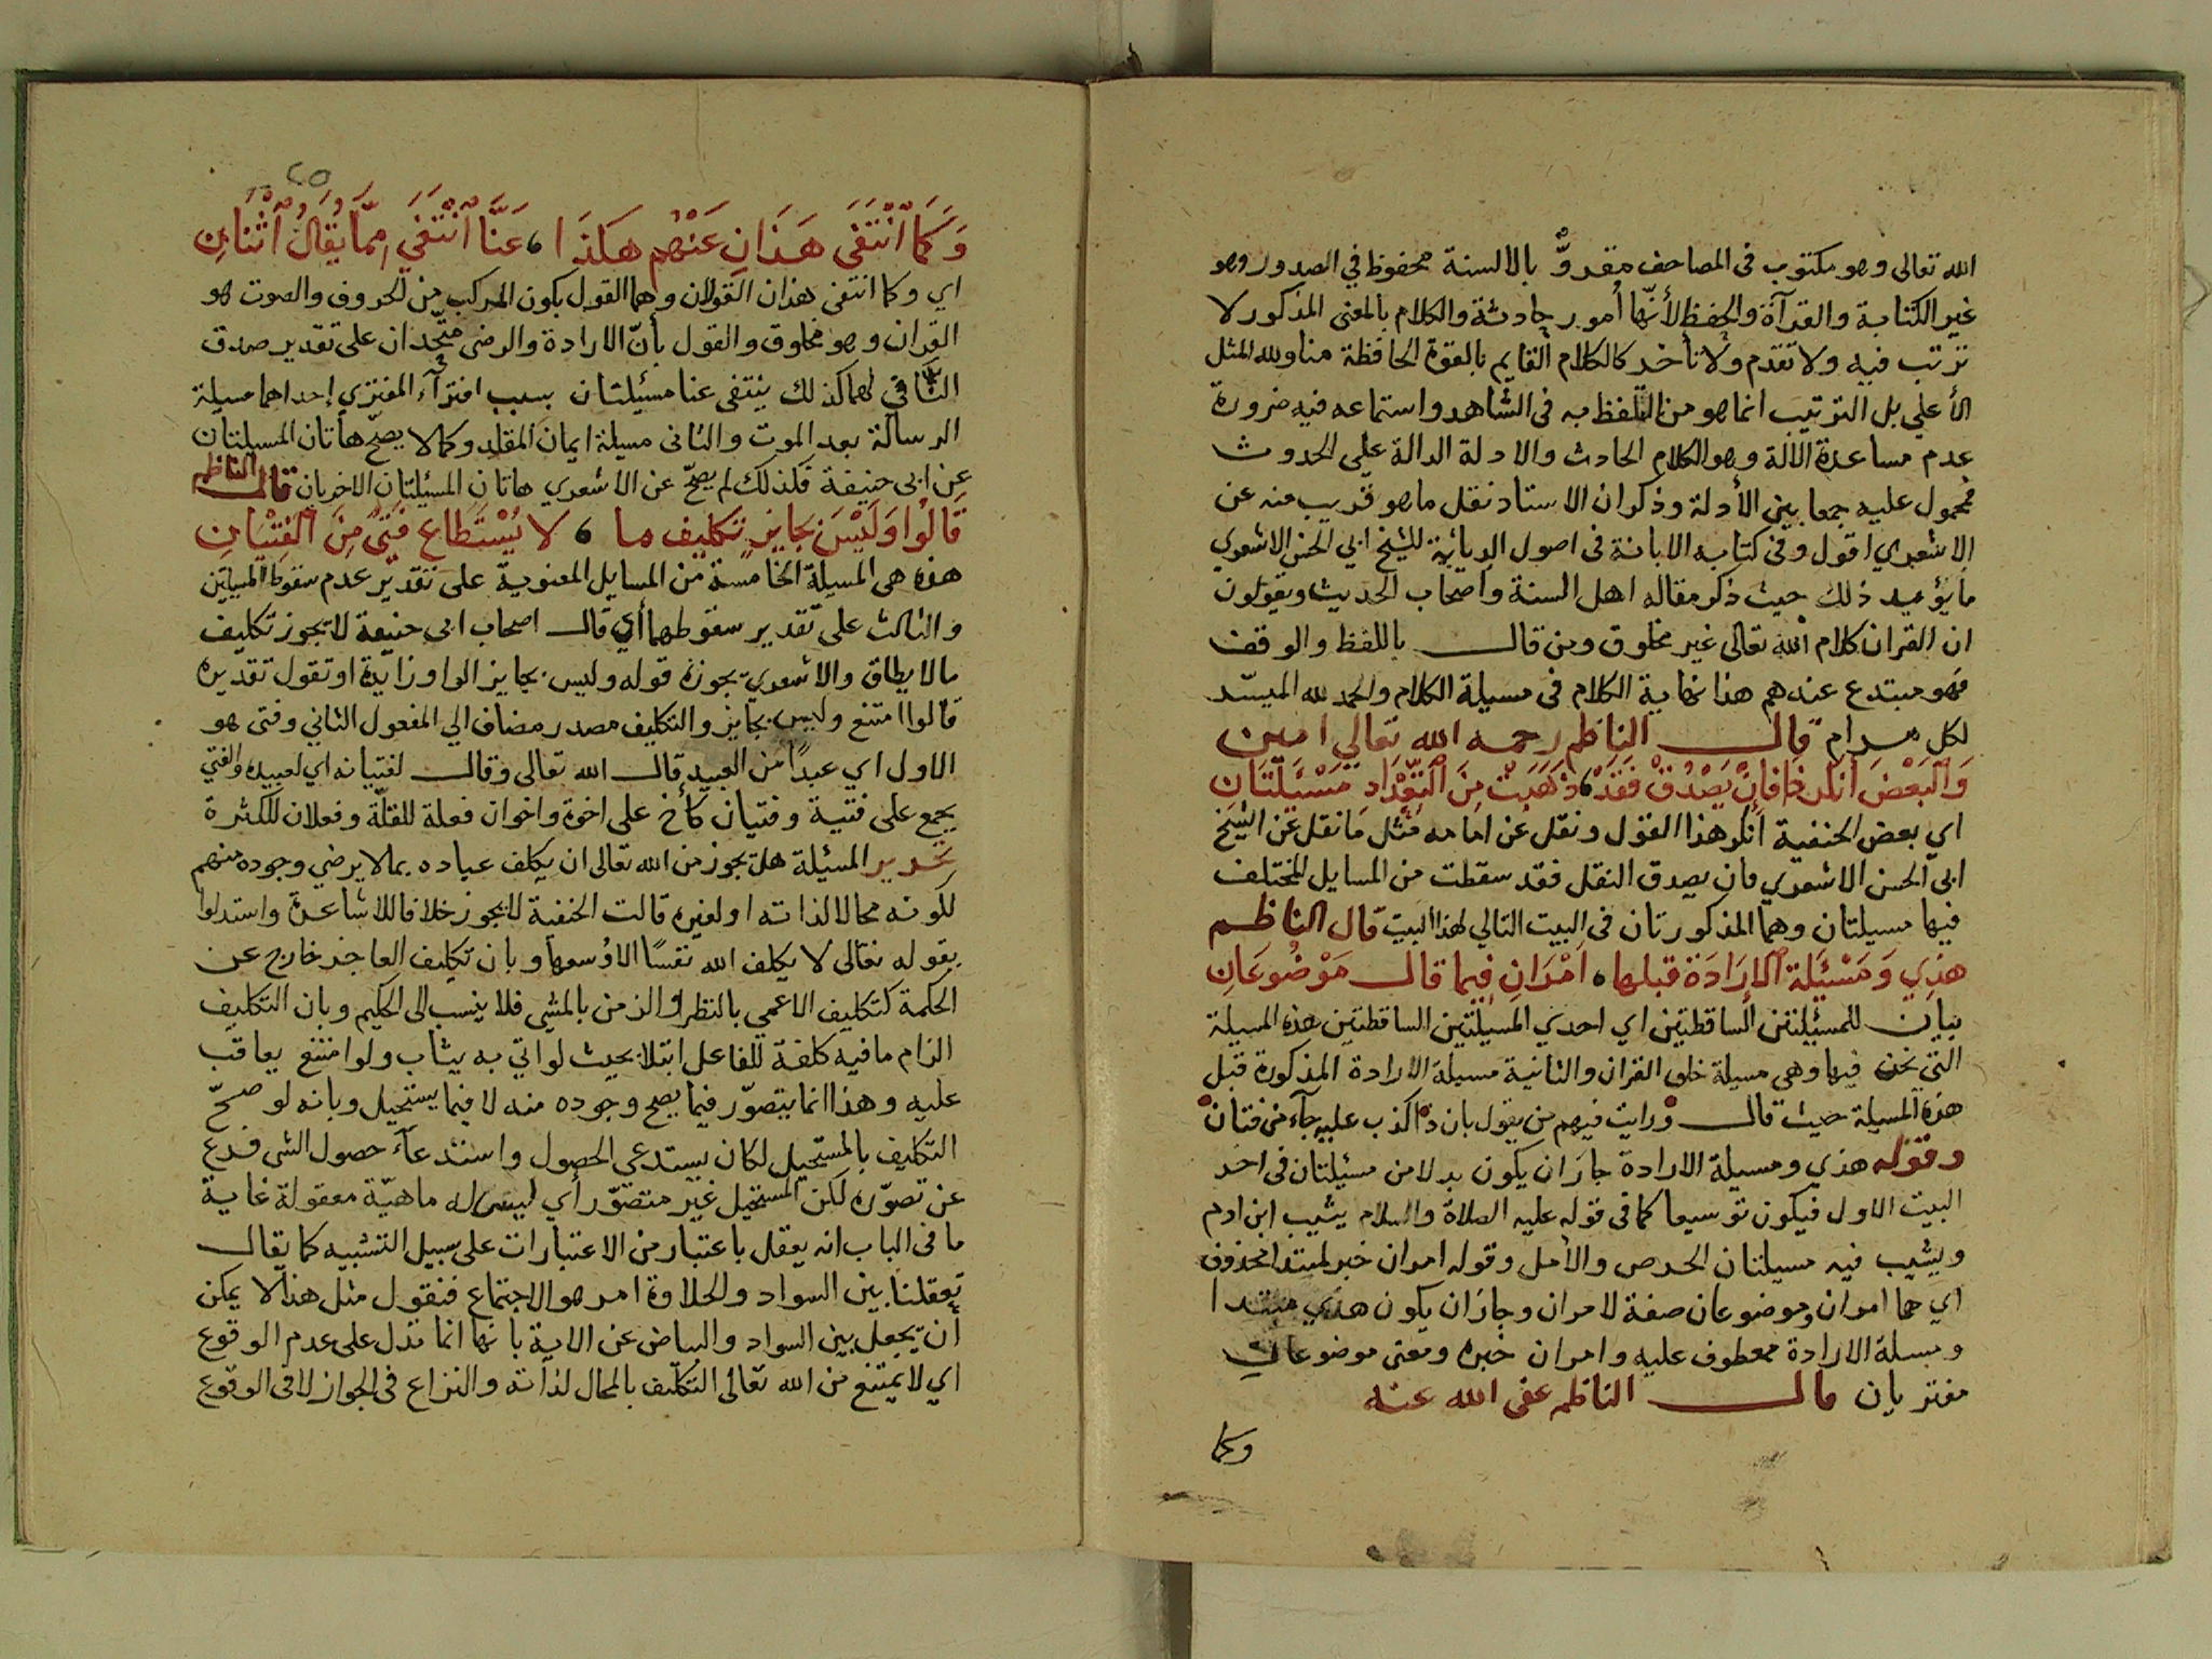 الله تعالى وهو مكتوب فى المصاحف مقروٌّ بالالسنة محفوظ في الصدور وهو
غير الكتابة والقرآة والحفظ لأنّها أمور حادثة والكلام بالمعنى المذكور لا
ترتب فيه ولا تقدم ولا تأخر كالكلام القايم بالقوة الحافظة منا ولله المثل
الأعلي بل الترتيب انما هو من التلفظ به فى الشاهد واستماعه فيه ضرورة
عدم مساعدة الالة وهو الكلام الحادث والادلة الدالة علي الحدوث
محمول عليه جمعا بين الأدلة وذكر ان الاستاد نقل ما هو قريب منه عن
الاشعري اقول وفى كتابه الابانة فى اصول الديانة للشيخ ابي الحسن الاشعري
ما يؤيد ذلك حيث ذكر مقاله اهل السنة واصحاب الحديث ويقولون
ان القران كلام الله تعالى غير مخلوق ومن قال باللفظ والوقف
فهو مبتدع عندهم هذا نهاية الكلام فى مسيلة الكلام والحمد لله الميسّر
لكل مرام قال الناظم رحمه الله تعالي امين
وَالبَعْضُ أنكر ذا فإنْ يَصْدُقْ فَقَدْ، ذَهَبَتْ مِنَ التِّعْدَادِ مَسْئَلَتَانِ
اي بعض الحنفية أنكر هذا القول ونقل عن امامه مثل ما نقل عن الشيخ
ابي الحسن الاشعري فان يصدق النقل فقد سقطت من المسايل المختلف
فيها مسيلتان وهما المذكورتان فى البيت التالي لهذا البيت قال الناظم
هذِي وَمَسْئَلة الإرَادَة قبلها، اَمْرَانِ فيما قال مَوْضُوعَانِ
بيان للمسئيلتين الساقطتين اي احدي المسيلتين الساقطتين هذه المسيلة
التي نحن فيها وهي مسيلة خلق القران والثانية مسيلة الارادة المذكورة قبل
هذه المسيلة حيث قال ورايت فيهم من يقول بان ذا كذب عليه جآء من فتان
وقوله هذي ومسيلة الارادة جاز ان يكون بدلا من مسئيلتان فى اخر
البيت الاول فيكون توسيعا كما فى قوله عليه الصلاة والسلام يشيب ابن ادم
ويشيب فيه مسيلتان الحرص والأمل وقوله امران خبر لمبتدا محذوف
اي هما امران وموضوعان صفة لامران وجاز ان يكون هذي مبتدا
ومسلة الارادة معطوف عليه وامران خبره ومعنى موضوعان
مفتريان قال الناظم عفى الله عنه
وكما
٢٥
وَكما انْتَفَى هَذانِ عَنْهُم هكذَا، عَنَّا انْتَفَي مِمّا يُقَالُ اثْنَانِ
اي وكما انتفى هذان القولان وهما القول بكون المركب من الحروف والصوت هو
القران وهو مخلوق والقول بأنّ الارادة والرضى متّحدان على تقدير صدق
النافي لهما كذلك ينتفى عنا مسيئلتان بسبب افترآء المفتري إحداهما مسيلة
الرسالة بعد الموت والثانى مسيلة ايمان المقلد وكما لا يصحّ هاتان المسيلتان
عن ابى حنيفة فكذلك لم يصحّ عن الاشعري هاتان المسيئلتان الاخريان قال الناظم
قَالُوا وَلَيْسَ بجَايزٍ تكليف ما، لا يُسْتَطاع فَتًى مِنَ الْفِتْيَانِ
هذه هى المسيلة الخامسة من المسايل المعنوية على تقدير عدم سقوط المسيلتين
والثالث على تقدير سقوطهما أي قال اصحاب ابى حنيفة لا يجوز تكليف
ما لا يطاق والاشعري يجوزه قوله وليس بجايز الواو زايدة او تقول تقديره
قالوا امتنع وليس بجايز والتكليف مصدر مضاف الي المفعول الثاني وفتى هو
الاول اي عبدًا من العبيد قال الله تعالى وقال لفتيانه اي لعبيده والفتي
يجمع على فتية وفتيان كأخ على اخوة واخوان فعلة للقلّة وفعلان للكثرة
تحرير المسئيلة هل يجوز من الله تعالى ان يكلف عباده بما لا يرضي وجوده منهم
لكونه محالا لذاته او لغيره قالت الحنفية لا يجوز خلافا للاشاعرة واستدلوا
بقوله تعالى لا يكلف الله نفسًا الا وُسعها وبان تكليف العاجز خارج عن
الحكمة كتكليف الاعمى بالنظر والزمن بالمشي فلا ينسب الى الحكيم وبان التكليف
الزام ما فيه كلفة للفاعل ابتلا بحيث لو اتي به يثاب ولو امتنع يعاقب
عليه وهذا انما يتصوّر فيما يصح وجوده منه لا فيما يستحيل وبانه لو صحّ
التكليف بالمستحيل لكان يستدعي الحصول واستدعآء حصول الشى فرع
عن تصوّره لكن المستحيل غير متصوّر أي ليس له ماهيّة معقولة غاية
ما فى الباب انه يعقل باعتبار من الاعتبارات على سبيل التشبيه كما يقال
تعقلنا بين السواد والحلاوة امر هو الاجتماع فنقول مثل هذا لا يمكن
أن يجعل بين السواد والبياض عن الاية بانها انما تدل على عدم الوقوع
اي لا يمتنع من الله تعالى التكليف بالمحال لذاته والنزاع فى الجواز لا فى الوقوع